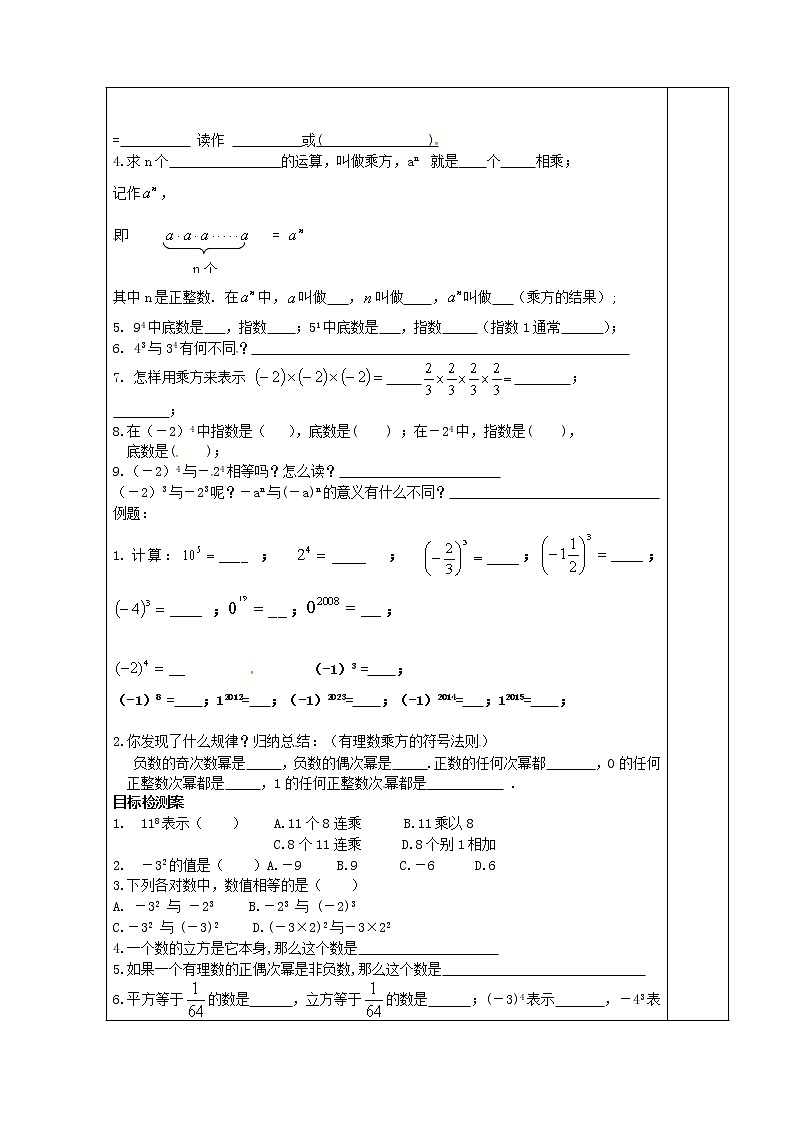 =__________ 读作 __________或(_______________)。
4.求n个________________的运算，叫做乘方，aⁿ 就是____个_____相乘；
记作aⁿ，
即 a·a·a·····a = aⁿ
n个
其中n是正整数. 在aⁿ中，a叫做___，n叫做____，aⁿ叫做___（乘方的结果）；
5. 9⁴中底数是___，指数____；5¹中底数是___，指数_____（指数1通常______）；
6. 4³与3⁴有何不同？______________________________________________________
7. 怎样用乘方来表示 (－2)×(－2)×(－2)=_____ 2/3×2/3×2/3×2/3=________；
________；
8.在（－2）⁴中指数是（ ），底数是( ) ；在－2⁴中，指数是( )，
底数是( )；
9.（－2）⁴与－2⁴相等吗？怎么读？_______________________
（－2）³与－2³呢？－aⁿ与(－a)ⁿ的意义有什么不同？______________________________
例题：
1. 计算：10⁵=____ ； 2⁴=____ ； (－2/3)³=____； (－1 1/2)³=____；
(－4)³=____ ；0¹⁹=__；0²⁰⁰⁸=__；
(－2)⁴=__ （-1）³=____；
（-1）⁸ =____；1²⁰¹²=___；（-1）²⁰²³=____；（-1）²⁰¹⁴=___；1²⁰¹⁵=____；
2.你发现了什么规律？归纳总结：（有理数乘方的符号法则）
负数的奇次数幂是_____，负数的偶次幂是_____.正数的任何次幂都_______，0的任何
正整数次幂都是_____，1的任何正整数次幂都是___________ .
目标检测案
1. 11⁸表示（ ） A.11个8连乘 B.11乘以8
C.8个11连乘 D.8个别1相加
2. －3²的值是（ ）A.－9 B.9 C.－6 D.6
3.下列各对数中，数值相等的是（ ）
A. －3² 与 －2³ B.－2³ 与 (－2)³
C.－3² 与 (－3)² D.(－3×2)²与－3×2²
4.一个数的立方是它本身,那么这个数是____________________
5.如果一个有理数的正偶次幂是非负数,那么这个数是_____________________________
6.平方等于1/64的数是______,立方等于1/64的数是______;(－3)⁴表示_______,－4³表